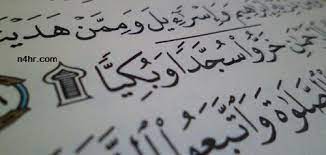 وَإِسْرَٰٓءِيلَ وَمِمَّنْ هَدَيْنَ
n4hr.com
خَرُّوا۟ سُجَّدًا وَبُكِيًّا ۩
ٱلصَّلَوٰةَ وَٱتَّبَعُوا۟